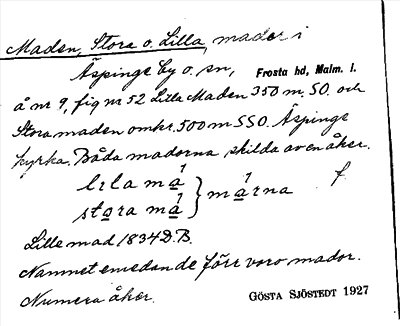 Maden, Stora o. Lilla, mader i
Äspinge by o. sn, Frosta hd, Malm. l.
å nr 9, fig nr 52 Lilla Maden 350 m. SO. och
Stora maden omkr. 500 m SSO. Äspinge
kyrka. Båda maderna skilda av en åker.
lila ma } marna f
stora ma
Lille mad 1834 D.B.
Namnet emedan de förr voro mador.
Numera åker.
GÖSTA SJÖSTEDT 1927